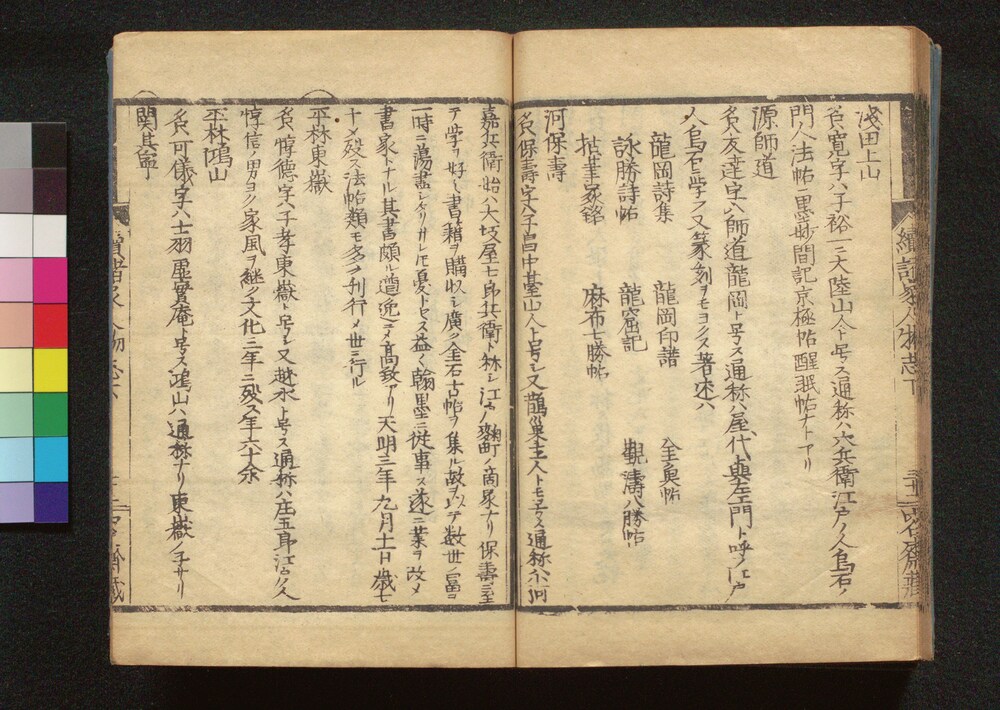 續諸家人物志下
淺田上山
名寛字ハ子裕一ニ大陸山人ト号ス通称ハ六兵衛江戸ノ人烏石ノ
門人法帖ニ墨妙間記京極帖醒眠帖ナトアリ
源師道
名ハ友達字ハ師道龍岡ト号ス通称ハ屋代與左エ門ト呼ヲ江戸ノ
人烏石ニ学フ又篆刻ヲモヨクス著述ハ
龍岡詩集 龍岡印譜
詠勝詩帖 龍窟記 觀濤八勝帖
拈華冢銘 麻布七勝帖
河保壽
名保壽字ハ子昌中基山人ト号シ又鵲巢主人トモ云フ通称ハ河
嘉兵衛始ハ大坂屋七郎兵衛ト称シ江戸ノ麹町ノ商家ナリ保壽ニ至
テ学ヲ好ミ書籍ヲ購收シ廣ク金石古帖ヲ集ル故ヲ以テ数世ノ冨
一時ニ蕩盡シケリサレトモ憂トセス益〻翰墨ニ従事ス遂ニ業ヲ改メ
書家トナル其書頗ル遒逸ニメ高致アリ天明三年九月十一日歳七
十ニメ歿ス法帖類モ多ク刋行メ世ニ行ル
平林東嶽
名惇徳字ハ子孝東嶽ト号シ又越水ト号ス通称ハ庄五郎江戸ノ人
惇信ノ男ヨク家風ヲ継ク文化三年ニ歿ス年六十余
平林鴻山
名ハ可儀字ハ士羽虚實庵ト号ス鴻山ハ通称ナリ東嶽ノ子ナリ
関其寧
續諸家人物志下